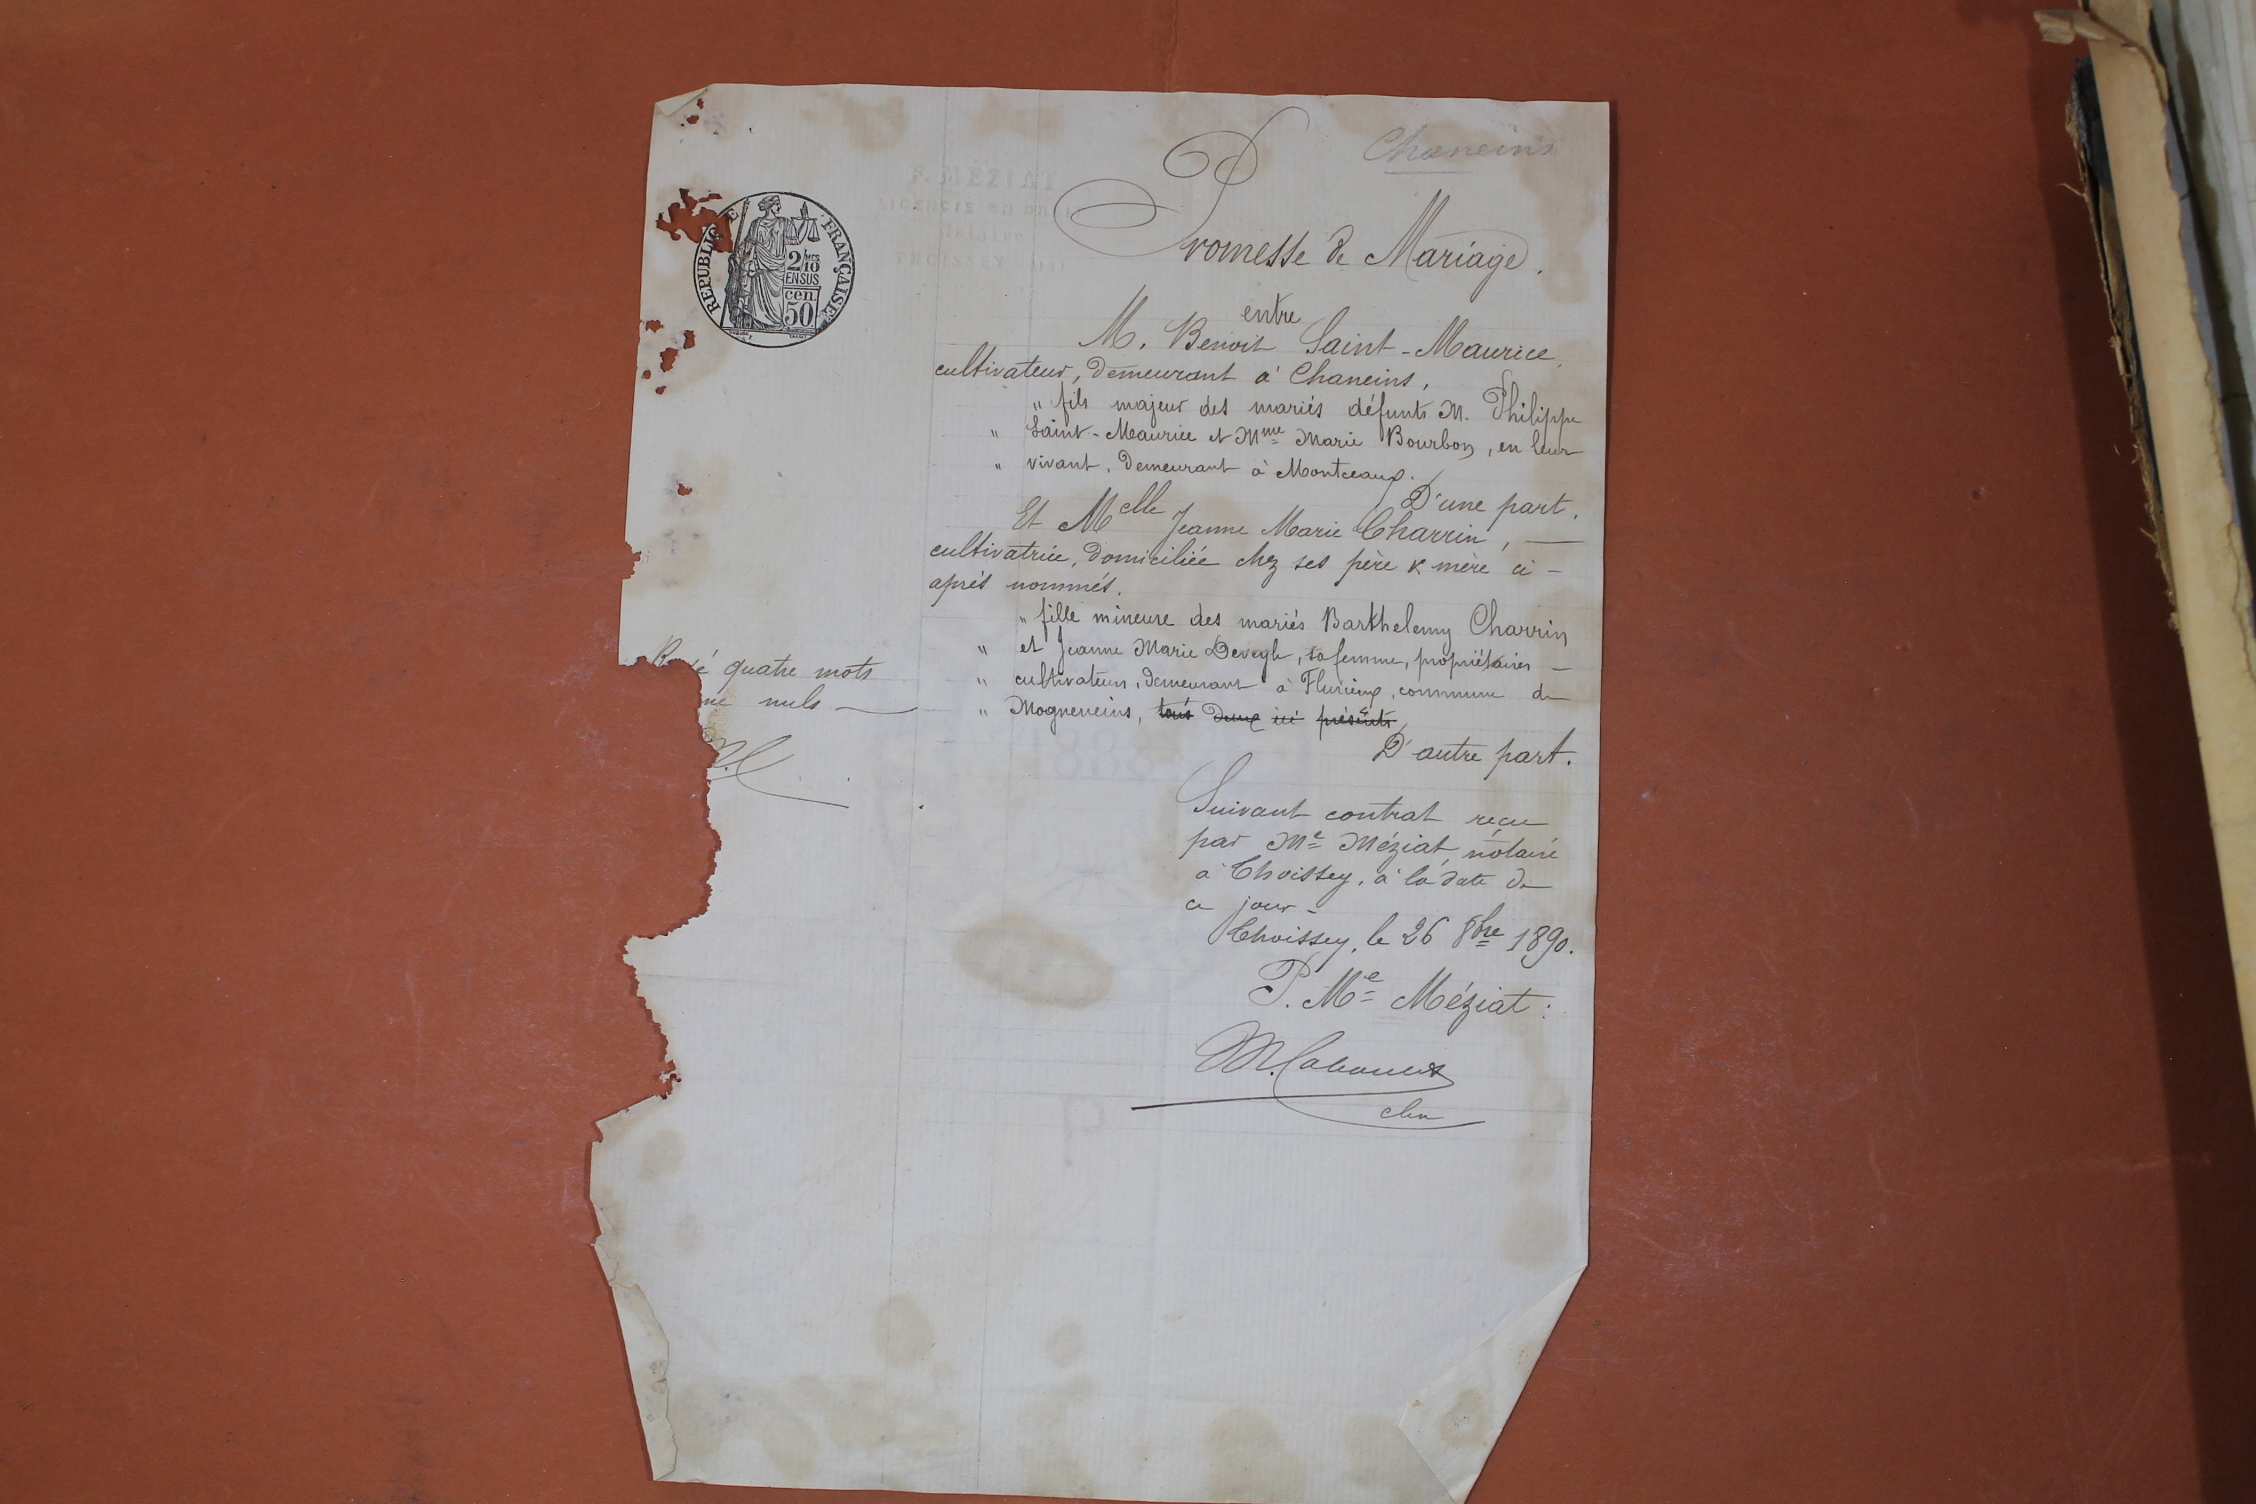 Chaneins
P. MÉZIAT
LICENCIÉ EN DROIT
Notaire
THOISSEY
REPUBLIQUE FRANÇAISE
2/10
EN SUS
cen.
50
Promesse de Mariage.
entre
M. Benoit Saint-Maurice,
cultivateur, demeurant à Chaneins,
" fils majeur des mariés défunts M. Philippe
" Saint-Maurice et Mme Marie Bourbon, en leur
" vivant, demeurant à Montceaux.
D'une part.
Et Melle Jeanne Marie Charrin, —
cultivatrice, domiciliée chez ses père & mère ci-
après nommés.
" fille mineure des mariés Barthelemy Charrin
" et Jeanne Marie, sa femme, propriétaires —
" cultivateurs, demeurant à Flurieux, commune de
" Mogneneins, tous deux ici présents
D'autre part.
é quatre mots
me nuls —
Suivant contrat reçu
par Me Méziat, notaire
à Thoissey, à la date de
ce jour -
Thoissey, le 26 8bre 1890.
P. Me Méziat :